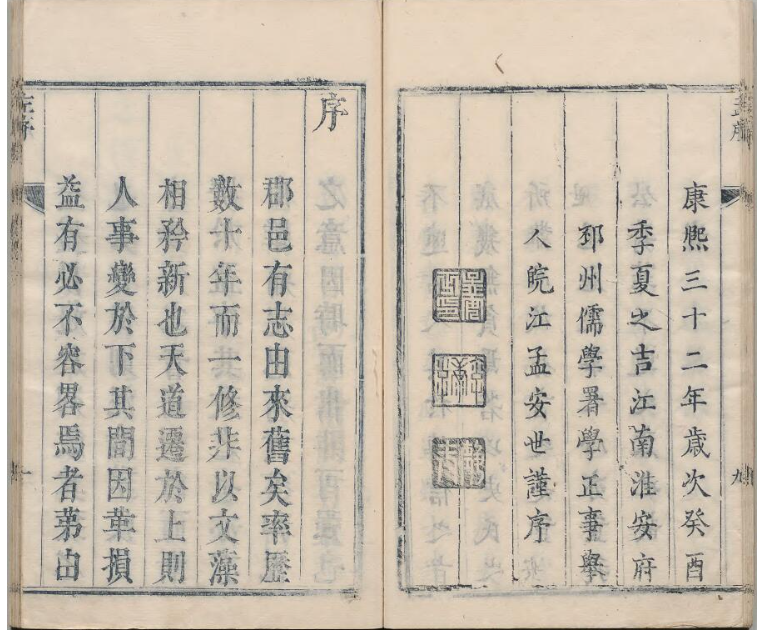 康熙三十二年歲次癸酉
季夏之吉江南淮安府
邳州儒學署學正事舉
人皖江孟安世謹序
九
序
郡邑有志由來舊矣率歷
數十年而一修非以文藻
相矜新也天道遷於上則
人事變於下其間因革損
益有必不容畧焉者第由
一